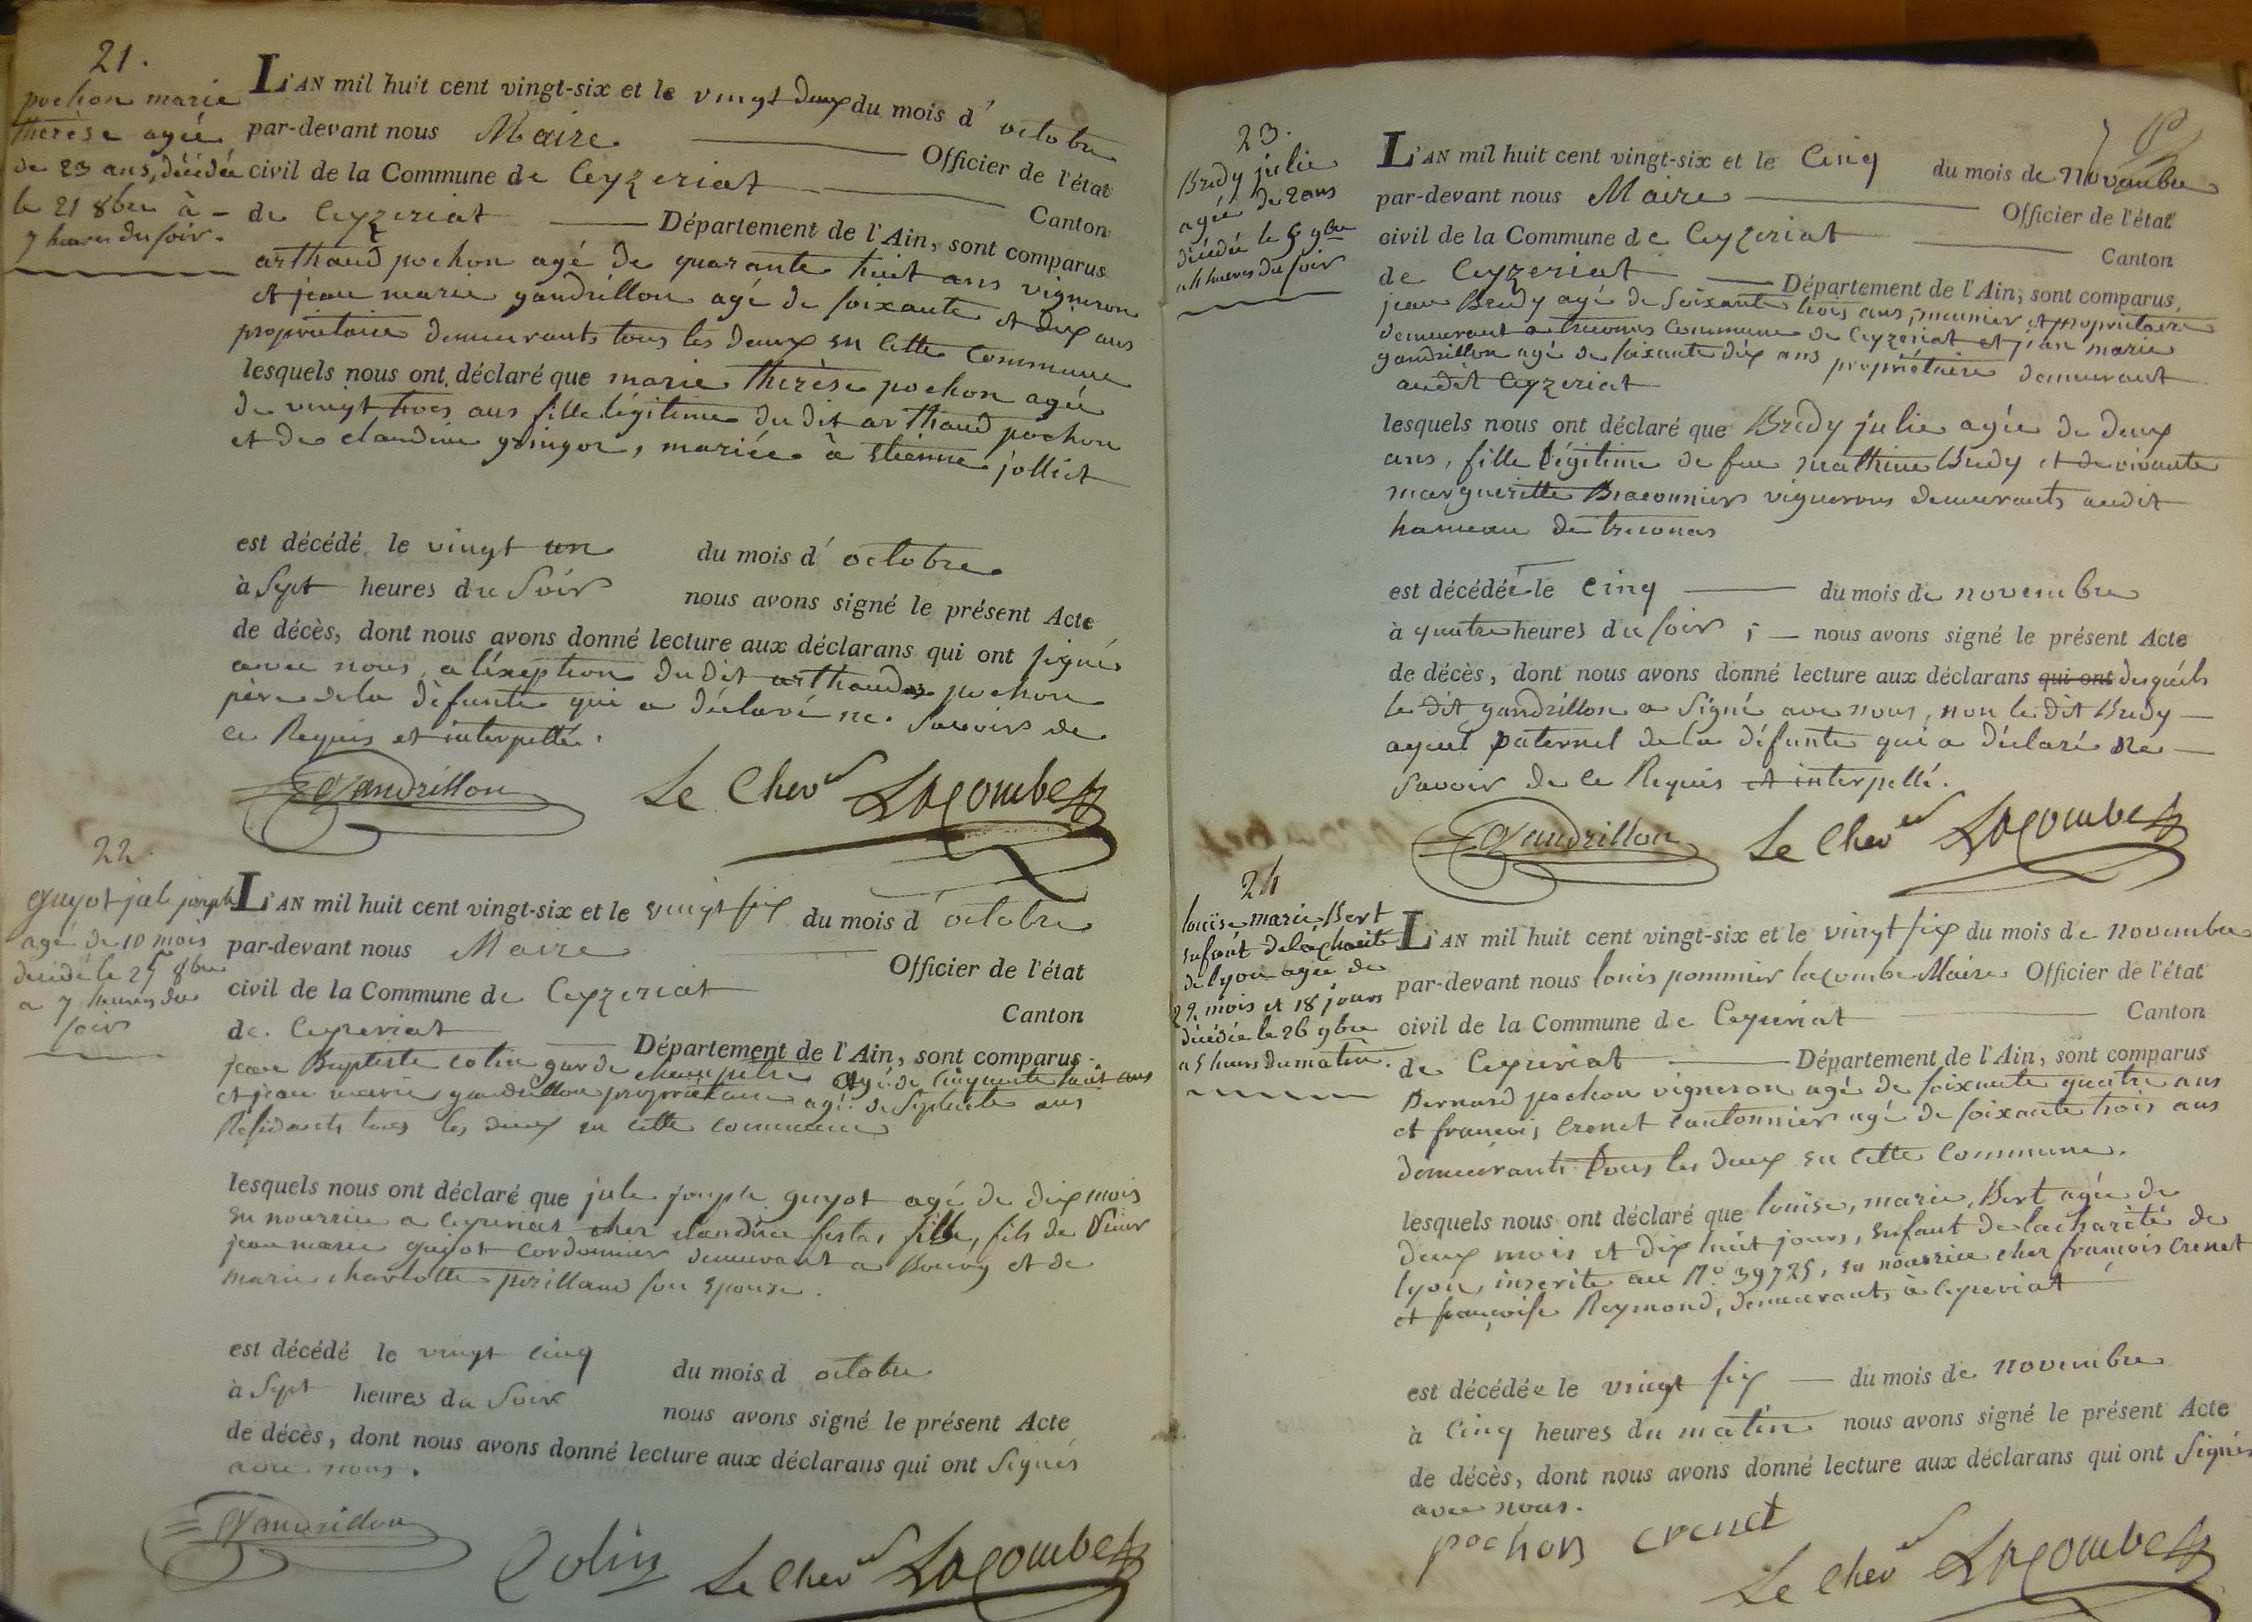 21.
pochon marie
therèse agée
de 23 ans, décédée
le 21 8bre à
7 heures du soir.
L'AN mil huit cent vingt-six et le vingt deux du mois d'octobre
par-devant nous Maire Officier de l'état
civil de la Commune de Ceyzeriat Canton
de Ceyzeriat Département de l'Ain, sont comparus
arthaud pochon agé de quarante huit ans vigneron
et jean marie gandrillon agé de soixante et dix ans
propriétaire demeurants tous les deux en cette commune
lesquels nous ont déclaré que marie therèse pochon agée
de vingt trois ans fille légitime du dit arthaud pochon
et de claudine gringoz, mariée à etienne jolliet
est décédé le vingt un du mois d'octobre
à sept heures du soir nous avons signé le présent Acte
de décès, dont nous avons donné lecture aux déclarans qui ont signés
avec nous, a l'exeption du dit arthaud pochon
père de la défunte qui a déclaré ne savoir de
ce Requis et interpellé.
Gandrillon Le Chevr Lacombe
22.
guyot jule joseph
agé de 10 mois
décédé le 25 8bre
a 7 heures du
soir
L'AN mil huit cent vingt-six et le vingt six du mois d'octobre
par-devant nous Maire Officier de l'état
civil de la Commune de Ceyzeriat Canton
de Ceyzeriat Département de l'Ain, sont comparus
jean Baptiste colin garde champetre agé de cinquante huit ans
et jean marie gandrillon propriétaire agé de septante ans
Résidants tous les deux en cette commune
lesquels nous ont déclaré que jule joseph guyot agé de dix mois
en nourrice a ceyzeriat chez claudine festas fille, fils de sieur
jean marie guyot cordonnier demeurant a Bourg et de
marie charlotte perillaud son epouse.
est décédé le vingt cinq du mois d octobre
à sept heures du soir nous avons signé le présent Acte
de décès, dont nous avons donné lecture aux déclarans qui ont signés
avec nous.
Gandrillon Colin Le Chevr Lacombe
23.
Bredy julie
agée de 2 ans
décédée le 5 9bre
a 4 heures du soir
L'AN mil huit cent vingt-six et le cinq du mois de novembre
par-devant nous Maire Officier de l'état
civil de la Commune de Ceyzeriat Canton
de Ceyzeriat Département de l'Ain, sont comparus
jean Bredy agé de soixante trois ans, meunier et propriétaire
demeurant a treconas commune de Ceyzeriat et jean marie
gandrillon agé de soixante dix ans propriétaire demeurant
audit Ceyzeriat
lesquels nous ont déclaré que Bredy julie agée de deux
ans, fille légitime de feu mathieu Bredy et de vivante
margueritte Braconnier vignerons demeurants audit
hameau de treconas
est décédée le cinq du mois de novembre
à quatre heures du soir ; nous avons signé le présent Acte
de décès, dont nous avons donné lecture aux déclarans qui ont desquels
le dit gandrillon a signé avec nous, non le dit Bredy
ayeul paternel de la défunte qui a déclaré ne
savoir de ce Requis et interpellé.
Gandrillon Le Chevr Lacombe
24
louïse marie Bert
enfant de la charité
de lyon agée de
2 mois et 18 jours
décédée le 26 9bre
a 5 heures du matin.
L'AN mil huit cent vingt-six et le vingt six du mois de novembre
par-devant nous louis pommier lacombe Maire Officier de l'état
civil de la Commune de Ceyzeriat Canton
de Ceyzeriat Département de l'Ain, sont comparus
Bernard pochon vigneron agé de soixante quatre ans
et francois Crenet cantonnier agé de soixante trois ans
demeurants tous les deux en cette commune.
lesquels nous ont déclaré que louïse, marie, Bert agée de
deux mois et dix huit jours, enfant de la charité de
lyon, inscrite au No 39725, en nourrice chez francois Crenet
et francoise Reymond, demeurants à Ceyzeriat
est décédée le vingt six du mois de novembre
à cinq heures du matin nous avons signé le présent Acte
de décès, dont nous avons donné lecture aux déclarans qui ont signés
avec nous.
pochon crenet
Le Chevr Lacombe